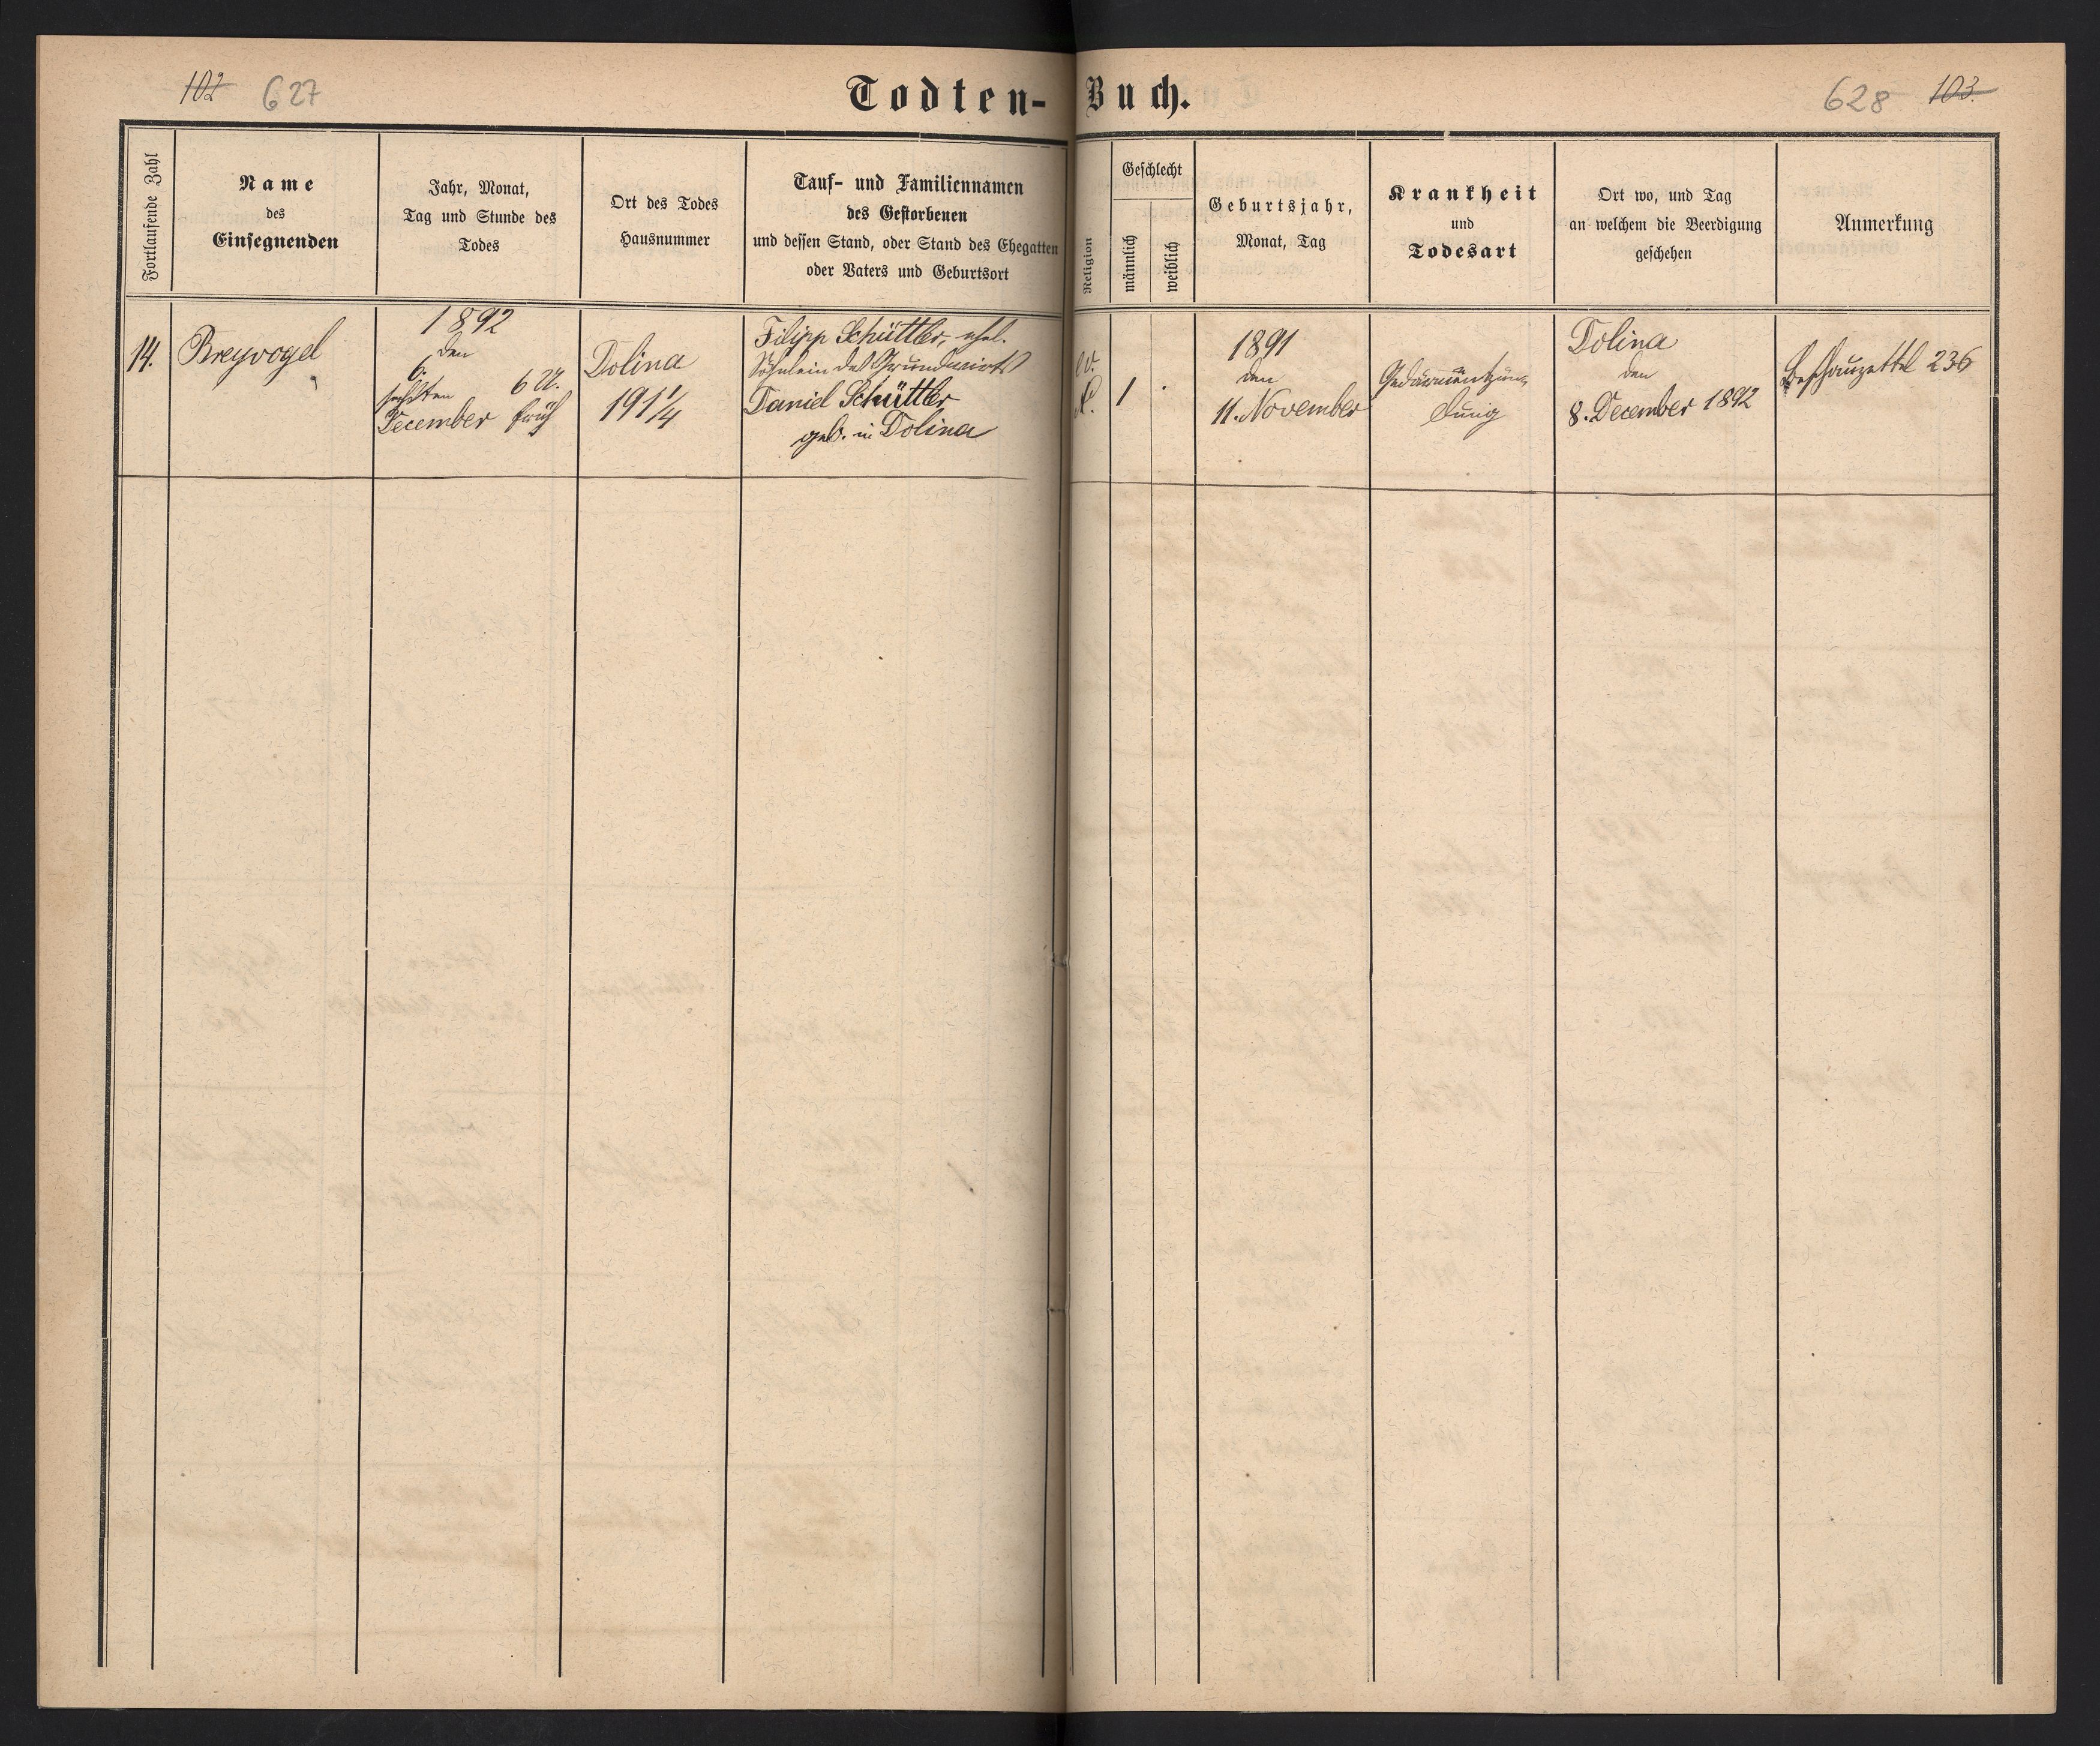 102 627
Todten-Buch.
628 103.
Fortlaufende Zahl
Name
des
Einsegnenden
Jahr, Monat,
Tag und Stunde des
Todes
Ort des Todes
Hausnummer
Tauf- und Familiennamen
des Gestorbenen
und dessen Stand, oder Stand des Ehegatten
oder Vaters und Geburtsort
Religion
Geschlecht
männlich
weiblich
Geburtsjahr,
Monat, Tag
Krankheit
und
Todesart
Ort wo, und Tag
an welchem die Beerdigung
geschehen
Anmerkung
14.
Breyvogel
1892
den
6.
sechsten 6 U.
December früh
Dolina
191 1/4
Filipp Schüttler, ehel.
Söhnlein des Grundwirts
Daniel Schüttler
geb. in Dolina
ev.
1
.
1891
den
11. November
Gedärmentzün-
dung
Dolina
den
8. December 1892
Beschauzettel 236